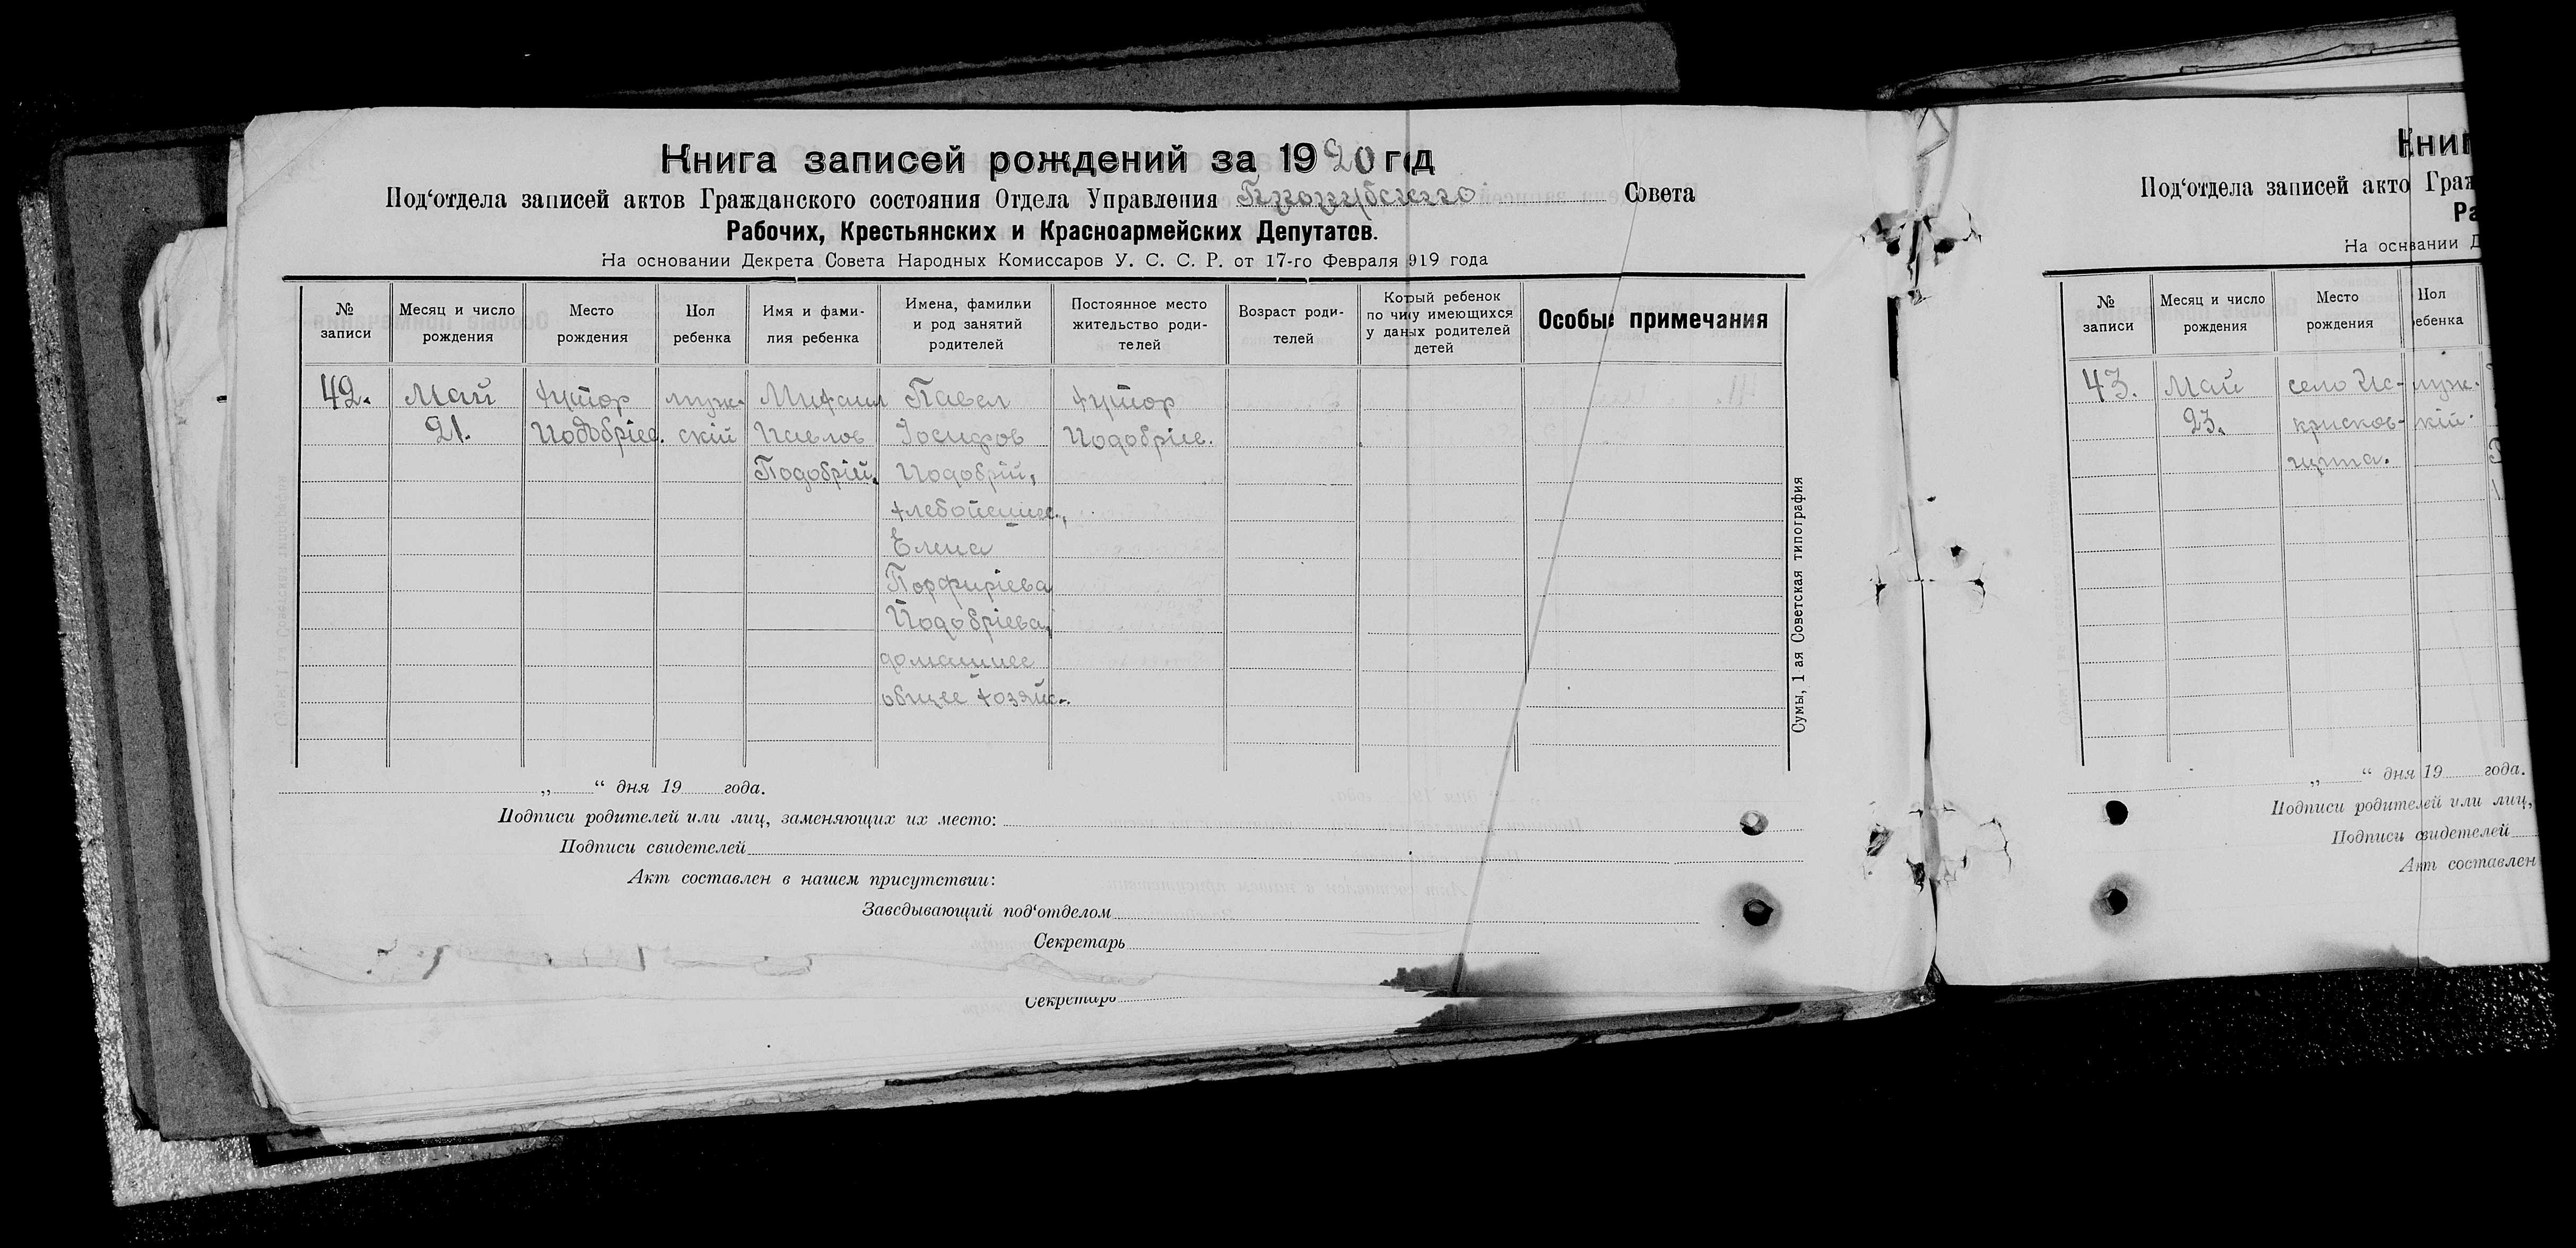 Книга записей рождений за 1920 год
Под‘отдела записей актов Гражданского состояния Отдела Управления Прорубского Совета
Рабочих, Крестьянских и Красноармейских Депутатов.
На основании Декрета Совета Народных Комиссаров У. С. С. Р. от 17-го Февраля 919 года
№ записи
Месяц и число рождения
Место рождения
Пол ребенка
Имя и фамилия ребенка
Имена, фамилии и род занятий родителей
Постоянное место жительство родителей
Возраст родителей
Который ребенок по числу имеющихся у данных родителей детей
Особые примечания
42.
Май
21.
хутор
Подобріев.
муж-
ский
Михаил
Павлов
Подобрій.
Павел
Іосифов
Подобрій,
Елена
Порфиріева
Подобріева,
домашнее
общее хозяйс-
хутор
Подобріев.
Сумы, 1 ая Советская типография
„ “ дня 19 года.
Подписи родителей или лиц, заменяющих их место:
Подписи свидетелей
Акт составлен в нашем присутствии:
Заведывающий под‘отделом
Секретарь
Секретарь
Книг
Под‘отдела записей акто Граж
Ра
На основании Д
№ записи
Месяц и число рождения
Место рождения
Пол ребенка
43.
Май
23.
село Ис-
крисков-
щина.
муж-
кій
„ “ дня 19 года.
Подписи родителей или лиц,
Подписи свидетелей
Акт составлен